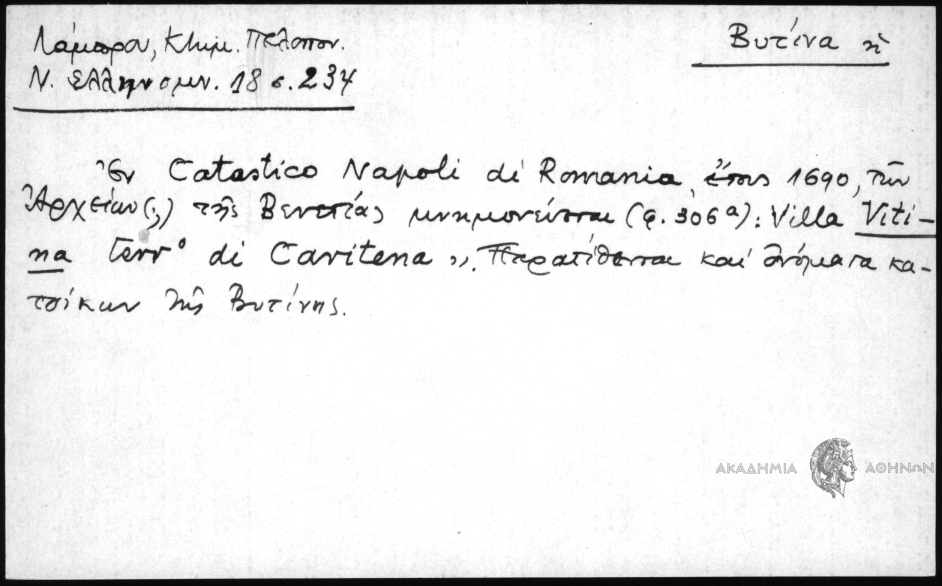 Λάμπρου, Κτημ. Πελοπον.
Ν. Ἑλληνομν. 18 σ. 234
Βυτίνα ἡ
Ἐν Catastico Napoli di Romania, ἔτους 1690, τῶν
Ἀρχείων(;) τῆς Βενετίας μνημονεύεται (φ. 306ᵃ): Villa Viti-
na Terrº di Caritena ». Παρατίθενται καὶ ὀνόματα κα-
τοίκων τῆς Βυτίνης.
ΑΚΑΔΗΜΙΑ ΑΘΗΝΩΝ